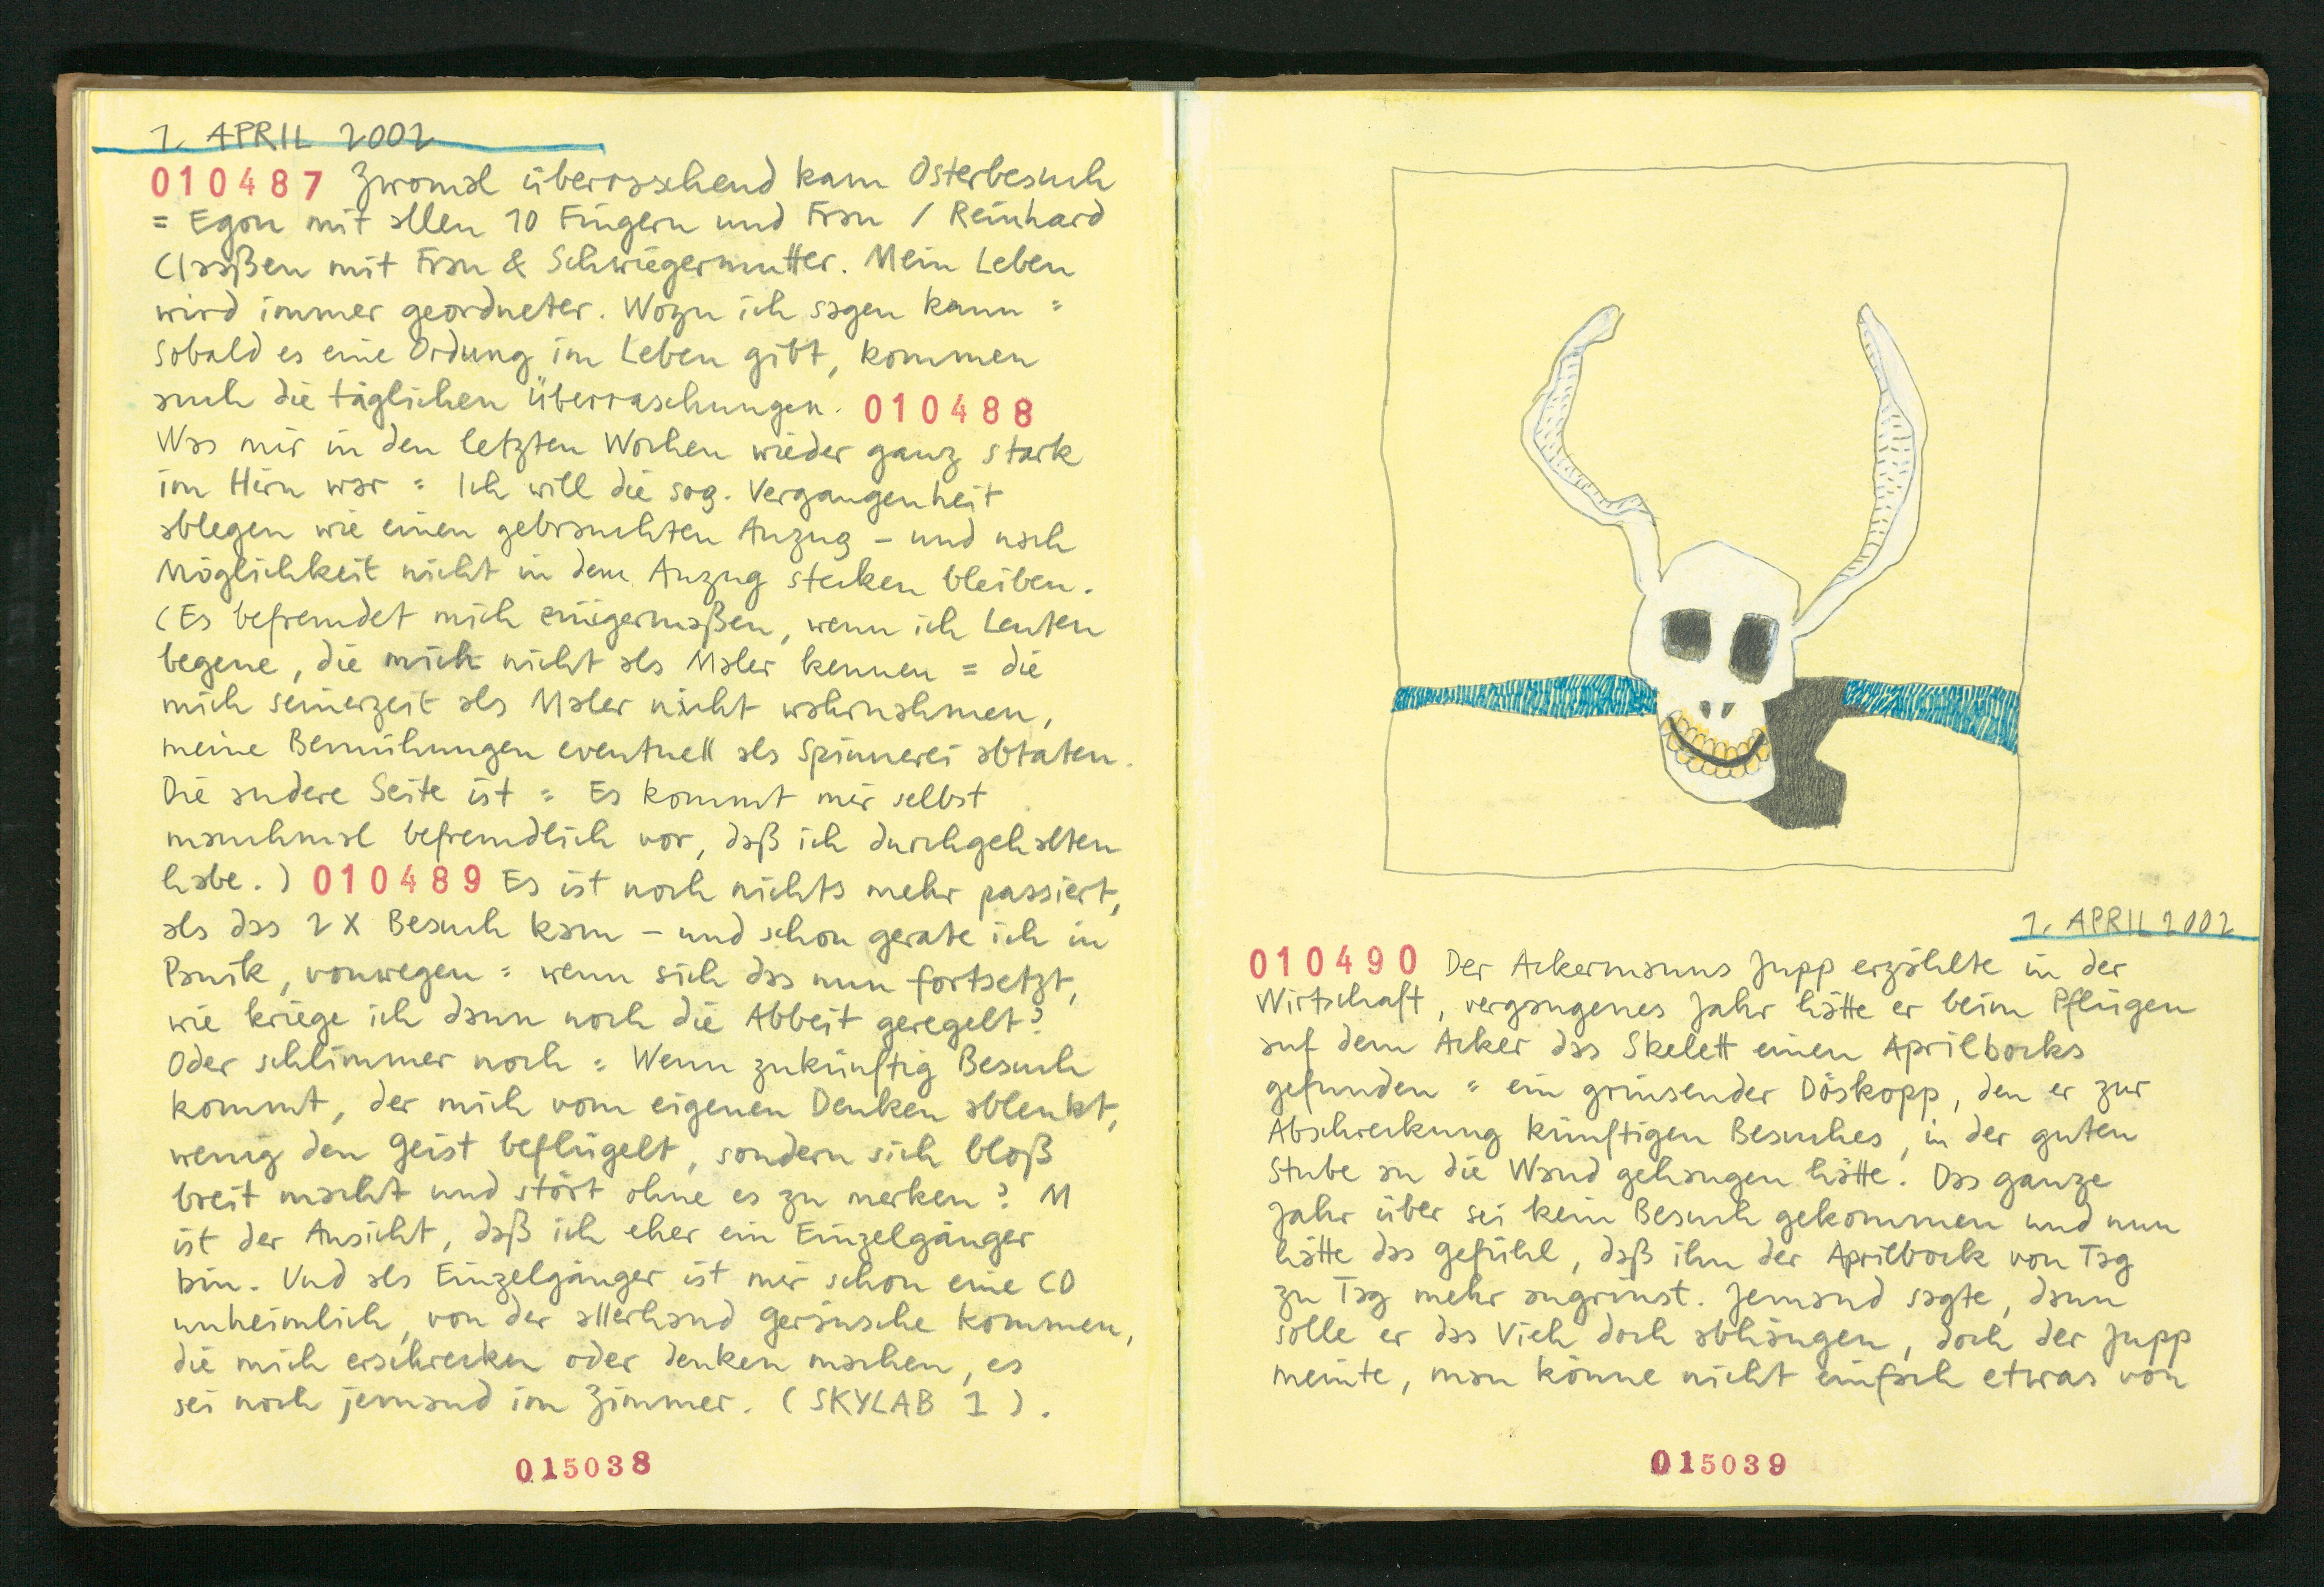 1. APRIL 2002
010487 Zwomal überraschend kam Osterbesuch
= Egon mit allen 10 Fingern und Frau / Reinhard
Claaßen mit Frau & Schwiegermutter. Mein Leben
wird immer geordneter. Wozu ich sagen kann =
Sobald es eine Ordung im Leben gibt, kommen
auch die täglichen Überraschungen. 010488
Was mir in den letzten Wochen wieder ganz stark
im Hirn war = Ich will die sog. Vergangenheit
ablegen wie einen gebrauchten Anzug – und nach
Möglichkeit nicht in dem Anzug stecken bleiben.
(Es befremdet mich einigermaßen, wenn ich Leuten
begene, die mich nicht als Maler kennen = die
mich seinerzeit als Maler nicht wahrnahmen,
meine Bemühungen eventuell als Spinnerei abtaten.
Die andere Seite ist = Es kommt mir selbst
manchmal befremdlich vor, daß ich durchgehalten
habe.) 010489 Es ist noch nichts mehr passiert,
als das 2 X Besuch kam – und schon gerate ich in
Panik, vonwegen = wenn sich das nun fortsetzt,
wie kriege ich dann noch die Abbeit geregelt?
Oder schlimmer noch = Wenn zukünftig Besuch
kommt, der mich vom eigenen Denken ablenkt,
wenig den Geist beflügelt, sondern sich bloß
breit macht und stört ohne es zu merken? M
ist der Ansicht, daß ich eher ein Einzelgänger
bin. Und als Einzelgänger ist mir schon eine CD
unheimlich, von der allerhand Geräusche kommen,
die mich erschrecken oder denken machen, es
sei noch jemand im Zimmer. (SKYLAB 1).
015038
1. APRIL 2002
010490 Der Ackermanns Jupp erzählte in der
Wirtschaft, vergangenes Jahr hätte er beim Pflügen
auf dem Acker das Skelett einen Aprilbocks
gefunden = ein grinsender Döskopp, den er zur
Abschreckung künftigen Besuches, in der guten
Stube an die Wand gehangen hätte. Das ganze
Jahr über sei kein Besuch gekommen und nun
hätte das Gefühl, daß ihn der Aprilbock von Tag
zu Tag mehr angrinst. Jemand sagte, dann
solle er das Vieh doch abhängen, doch der Jupp
meinte, man könne nicht einfach etwas von
015039